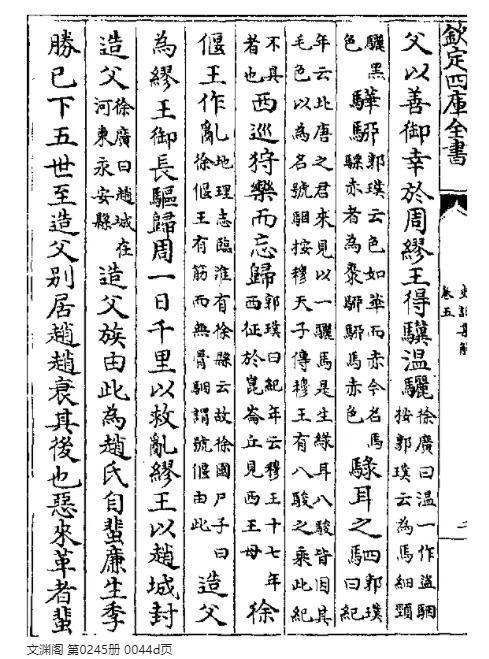 欽定四庫全書
史記集解
卷五
二
父以善御幸於周繆王得驥溫驪徐廣曰溫一作盜駰按郭璞云為馬細頸
驪黑色驊騮郭璞云色如華而赤今名馬驃赤者為棗騮騮馬赤色騄耳之駟郭璞曰紀
年云北唐之君來見以一驪馬是生綠耳八駿皆因其毛色以為名號駰按穆天子傳穆王有八駿之乘此紀
不具者也西巡狩樂而忘歸郭璞曰紀年云穆王十七年西征於崑崙丘見西王母徐
偃王作亂地理志臨淮有徐縣云故徐國尸子曰徐偃王有筋而無骨駰謂號偃由此造父
為繆王御長驅歸周一日千里以救亂繆王以趙城封
造父徐廣曰趙城在河東永安縣造父族由此為趙氏自蜚廉生季
勝已下五世至造父别居趙趙衰其後也惡來革者蜚
文渊阁 第0245册 0044d页